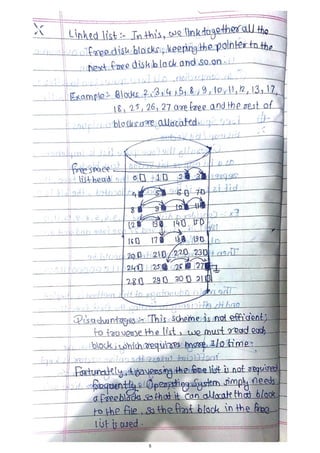 Linked list :- In this, we link together all the
free disk blocks, keeping the pointer to the
next free disk block and so on.
Example: Blocks 2,3,4,5,8,9,10,11,12,13,17,
18,25,26,27 are free and the rest of
blocks are allocated.
free space
list head
0 1 2 3
4 5 6 7
8 9 10 11
12 13 14 15
16 17 18 19
20 21 22 23
24 25 26 27
28 29 30 31
Disadvantages :- This scheme is not efficient;
to traverse the list, we must read each
block, which requires more I/O time.
Fortunatly, traversing the free list is not required
frequently. Operating System simply needs
a free block so that it can allocate that block
to the file, so the first block in the free
list is used.